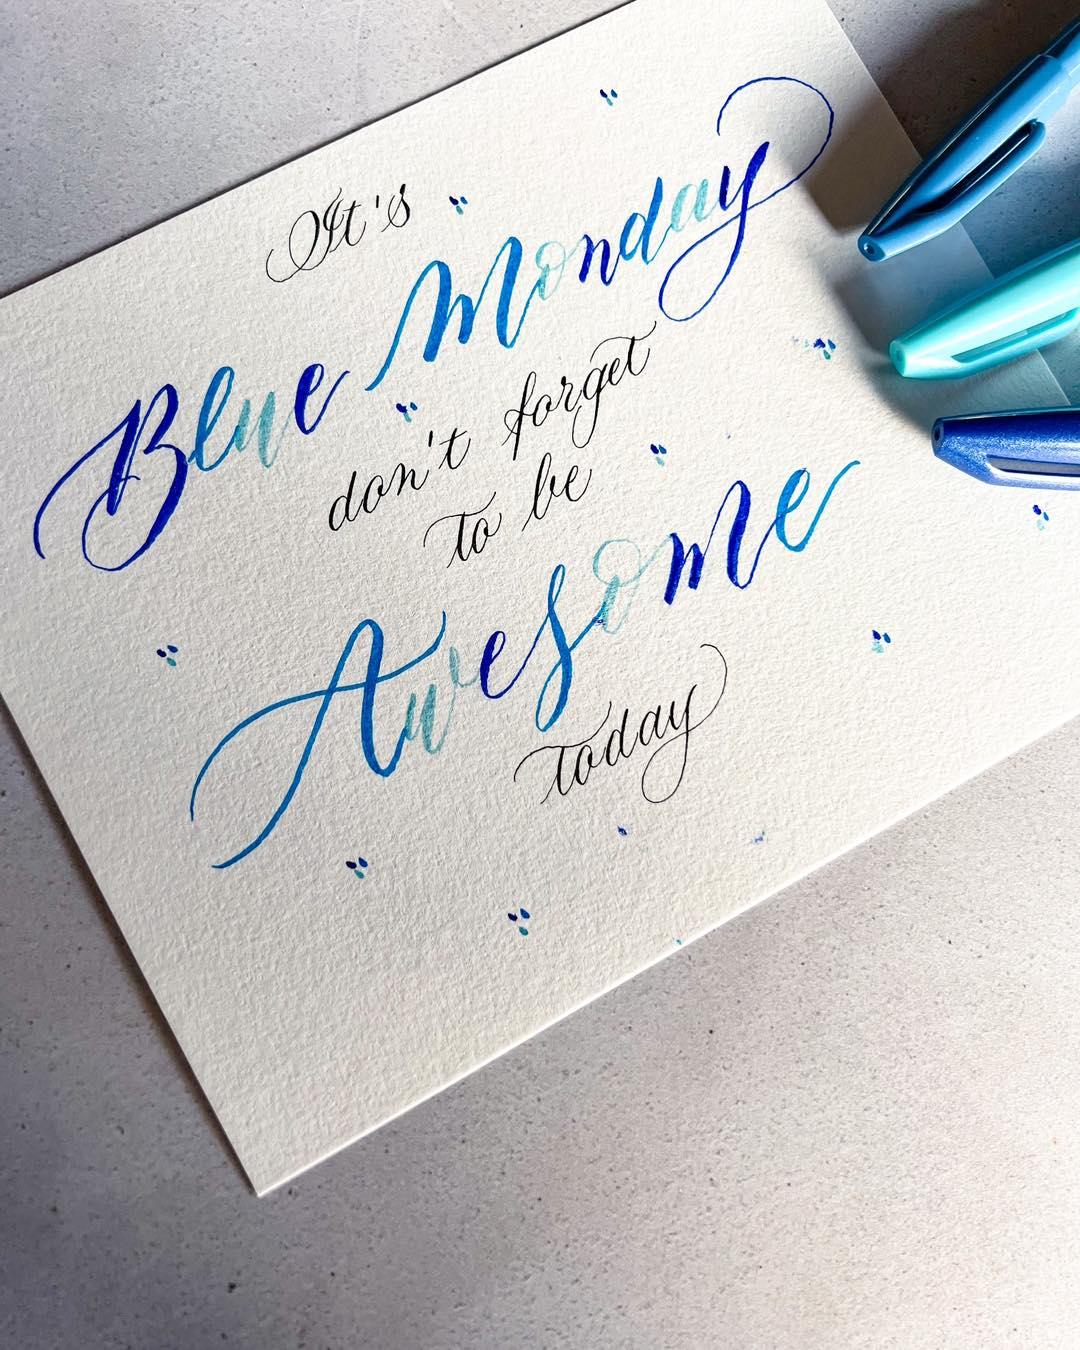 It's
Blue Monday
don't forget
to be
Awesome
today